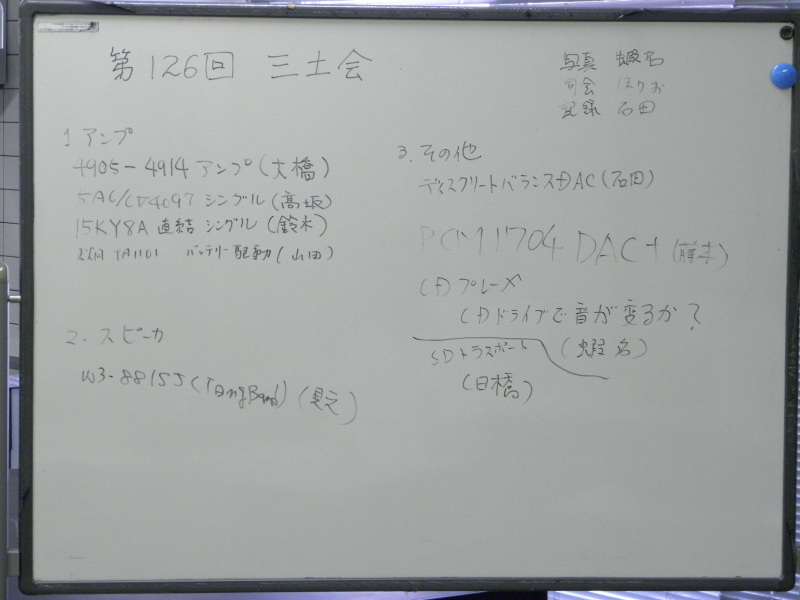 第126回 三土会
写真 蝦名
司会 ほりお
記録 石田
1 アンプ
4905-4914 アンプ(大橋)
シングル(高坂)
15KY8A 直結 シングル(鈴木)
TA1101 バッテリー駆動(山田)
2. スピーカ
W3-881SJ(TangBand)
3. その他
ディスクリートバランスDAC(石田)
PCM1704 DAC+(藤本)
CDプレーヤ
CDドライブで音が変るか?
(蝦名)
SDトラスポート